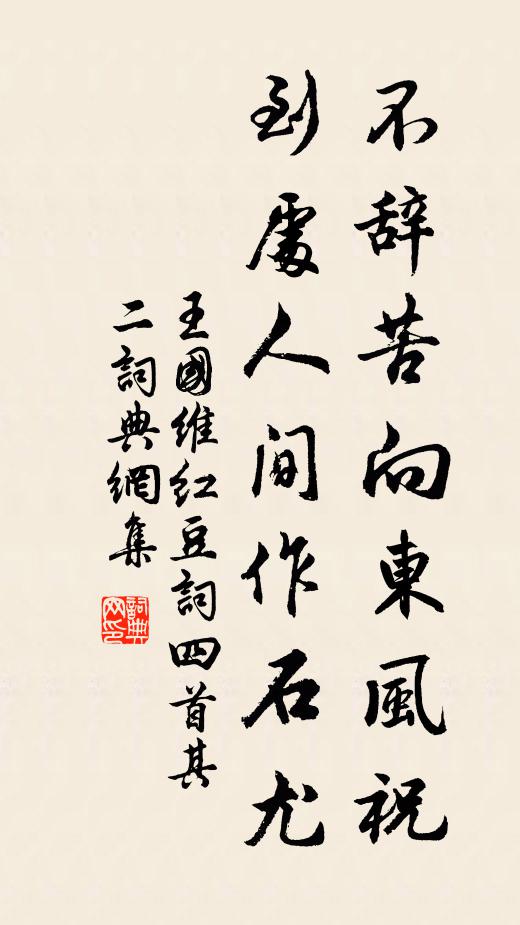 不辞苦向東風祝
到處人间作石尤
王國維红豆詞四首其
二詞典網集
詞典
网印